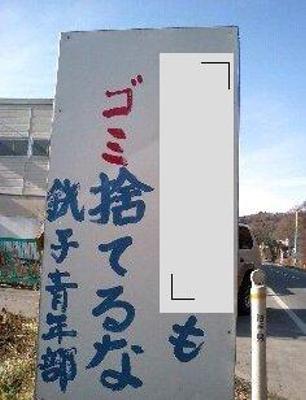 も
ゴミ捨てるな
銚子青年部